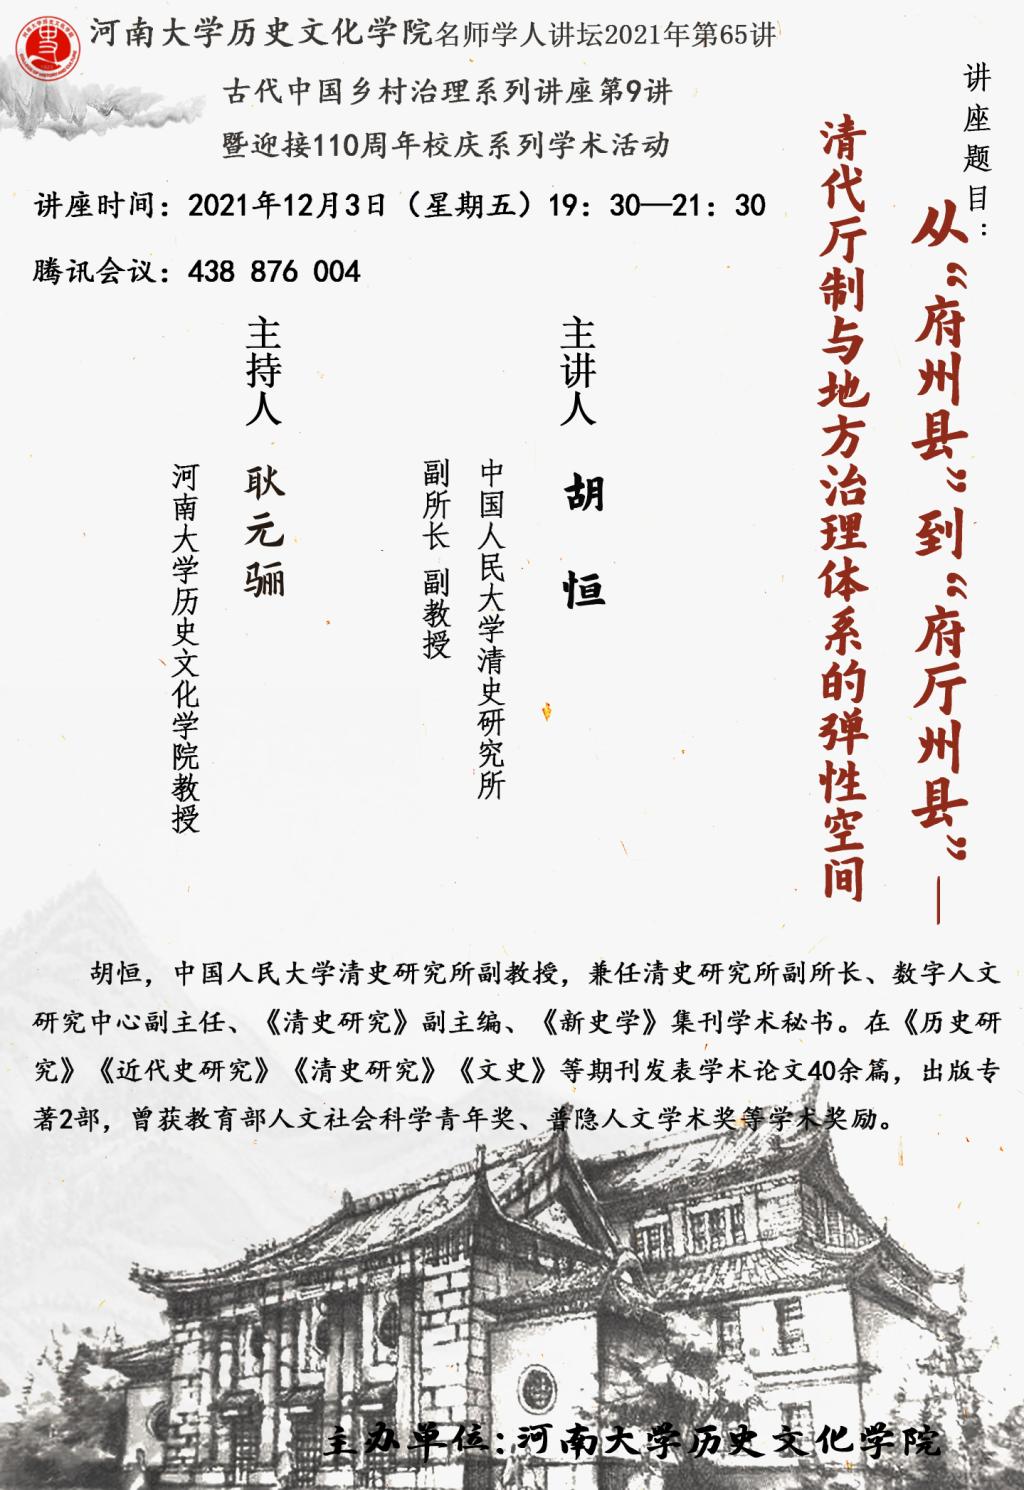 河南大学历史文化学院名师学人讲坛2021年第65讲
古代中国乡村治理系列讲座第9讲
暨迎接110周年校庆系列学术活动
讲座时间：2021年12月3日（星期五）19：30—21：30
腾讯会议：438 876 004
讲座题目：
从“府州县”到“府厅州县”—
清代厅制与地方治理体系的弹性空间
主讲人 胡恒
中国人民大学清史研究所
副所长 副教授
主持人 耿元骊
河南大学历史文化学院教授
胡恒，中国人民大学清史研究所副教授，兼任清史研究所副所长、数字人文
研究中心副主任、《清史研究》副主编、《新史学》集刊学术秘书。在《历史研
究》《近代史研究》《清史研究》《文史》等期刊发表学术论文40余篇，出版专
著2部，曾获教育部人文社会科学青年奖、普隐人文学术奖等学术奖励。
主办单位：河南大学历史文化学院